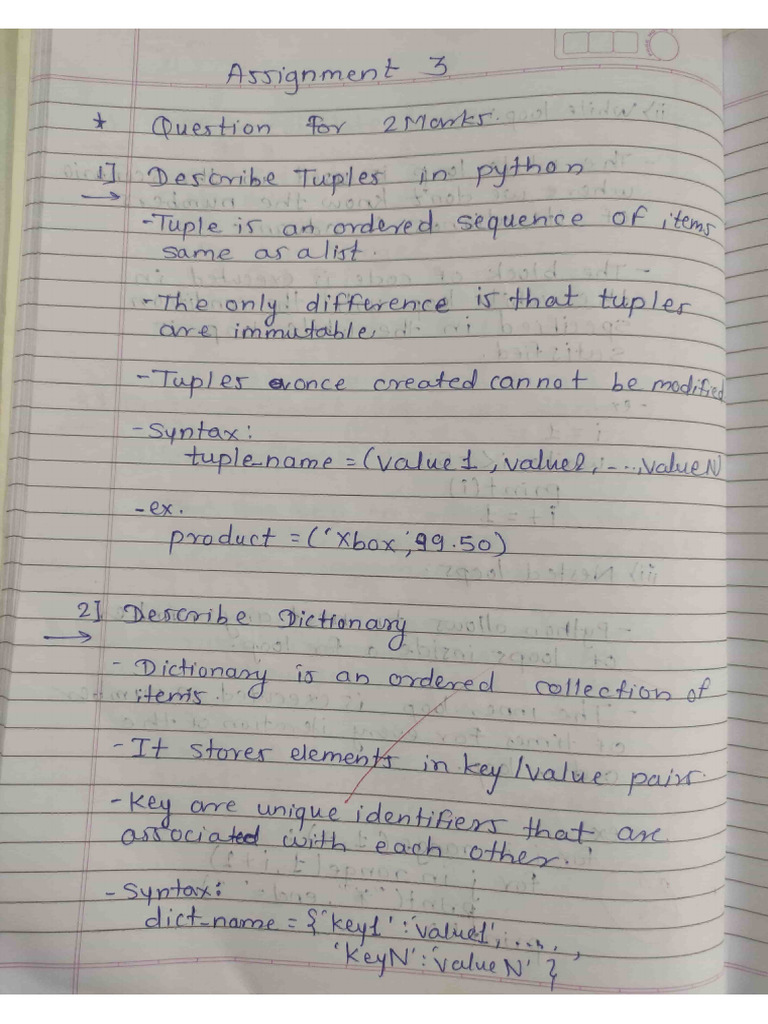 Assignment 3
* Question for 2 Marks.
1] Describe Tuples in python
→ -Tuple is an ordered sequence of items
same as a list.
-The only difference is that tuples
are immutable.
-Tuples once created cannot be modified
-Syntax:
tuple_name = (value1, value2, ...., valueN)
-ex.
product = ('Xbox', 99.50)
2] Describe Dictionary
→
- Dictionary is an ordered collection of
items.
-It stores elements in key/value pairs.
-Key are unique identifiers that are
associated with each other.
-Syntax:
dict_name = {'key1':'value1', ....,
'KeyN':'valueN'}